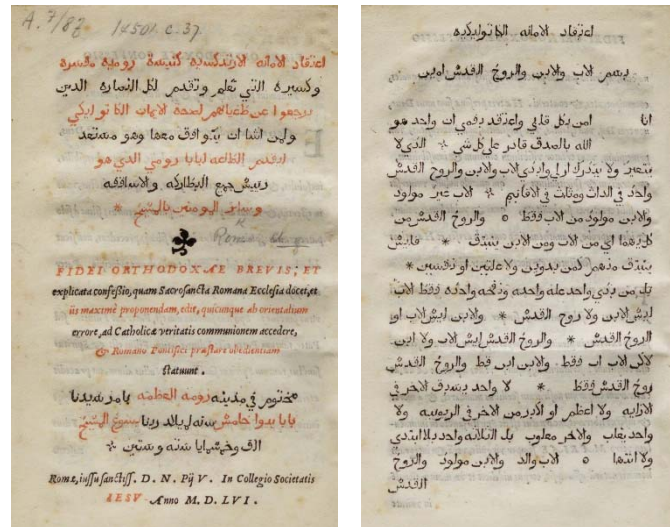 A.7/87 14501.c.37.
اعتقاد الامانه الارتدكسيه كنيسة روميه مفسره
وكسيره التي تعلم وتقدم لكل النصاره الدين
يرجعوا عن طغيانهم لصحة الايمان الكاتوليكي
ولمن اشا ان يتوافق معها وهو مستعد
ليقدم الطاعه لبابا رومي الدي هو
رييس جمع البطاركه والاساقفه
وساير المومنين بالمسيح *
FIDEI ORTHODOXAE BREVIS, ET
explicata confeßio, quam Sacrosancta Romana Ecclesia docet, et
iis maximè proponendam, edit, quicunque ab orientalium
errore, ad Catholicæ veritatis communionem accedere,
& Romano Pontifici præstare obedientiam
statuunt.
مختوم في مدينه رومه العظمه بامر سيدنا
بابا بيوا خامس سنه لميلاد ربنا يسوع المسيح
الف وخمس مايا سته وستين *
Romæ, iussu sanctiss. D. N. Pij V. In Collegio Societatis
IESV Anno M. D. LVI.
اعتقاد الامانه الكاتوليكيه
بسم الاب والابن والروح القدس امين
انا امن بكل قلبي واعتقد بفمي ان واحد هو
الله بالصدق قادر علي كل شي * الدي لا
يتغير ولا يتدرك ازلي وابدي الاب والابن والروح القدس
واحد في الدات ومتلت في الاقانيم * الاب غير مولود
والابن مولود من الاب فقط ○ والروح القدس من
كليهما اي من الاب ومن الابن ينبتق * فليس
ينبتق منهم كمن بدوين ولا علتين او نفسين *
بل من بدي واحد عله واحده ونفخه واحده فقط الاب
ليس الابن ولا روح القدس * والابن ليس الاب او
الروح القدس * والروح القدس ليس الاب ولا ابن
لاكن الاب اب فقط والابن ابن فقط والروح القدس
روح القدس فقط * لا واحد يسبق الاخر في
الازليه ولا اعظم او اكبر من الاخر في الربوبيه ولا
واحد يغلب والاخر مغلوب بل التلاته واحد بلا ابتدي
ولا انتها ○ الاب والد والابن مولود والروح
القدس